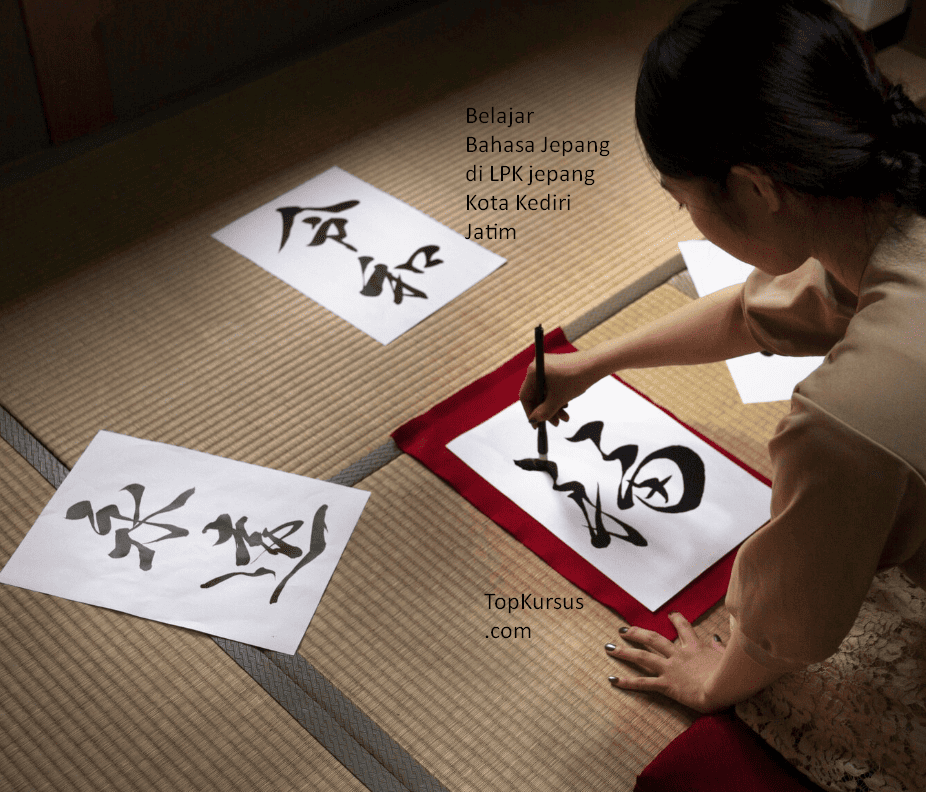 Belajar
Bahasa Jepang
di LPK jepang
Kota Kediri
Jatim
令和
TopKursus
.com